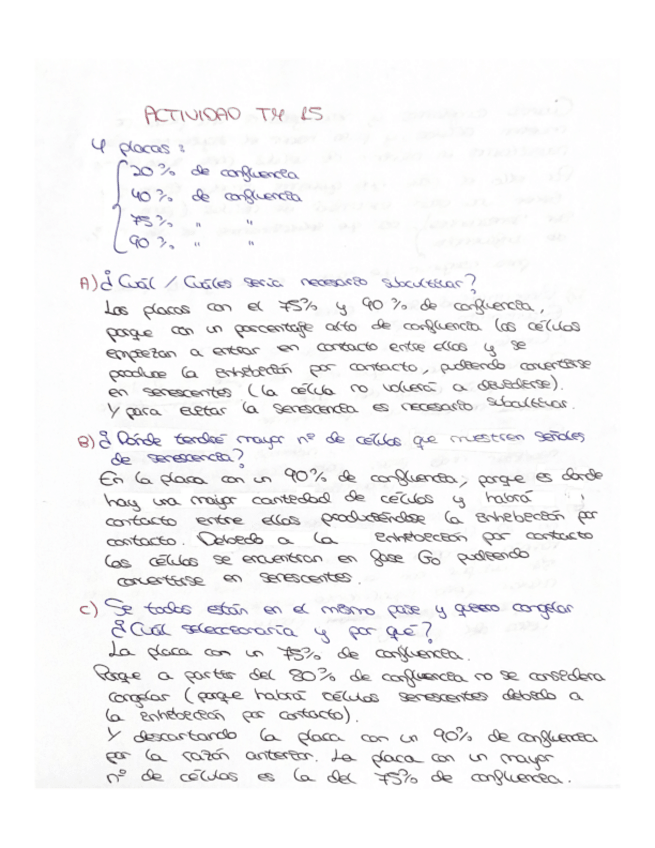 ACTIVIDAD T4 15
4 placas:
20% de confluencia
40% de confluencia
75% " "
90% " "
A) ¿Cuál / Cuáles sería necesario subcultivar?
Las placas con el 75% y 90% de confluencia,
porque con un porcentaje alto de confluencia las células
empiezan a entrar en contacto entre ellas y se
produce la inhibición por contacto, pudiendo convertirse
en senescentes (la célula no volverá a dividirse).
Y para evitar la senescencia es necesario subcultivar.
B) ¿Dónde tendré mayor nº de células que muestren señales
de senescencia?
En la placa con un 90% de confluencia, porque es donde
hay una mayor cantidad de células y habrá
contacto entre ellas produciéndose la inhibición por
contacto. Debido a la inhibición por contacto
las células se encuentran en fase G0 pudiendo
convertirse en senescentes.
C) Si todas están en el mismo pase y quiero congelar
¿Cuál seleccionaría y por qué?
La placa con un 75% de confluencia.
Porque a partir del 80% de confluencia no se considera
congelar (porque habrá células senescentes debido a
la inhibición por contacto).
Y descartando la placa con un 90% de confluencia
por la razón anterior. La placa con un mayor
nº de células es la del 75% de confluencia.